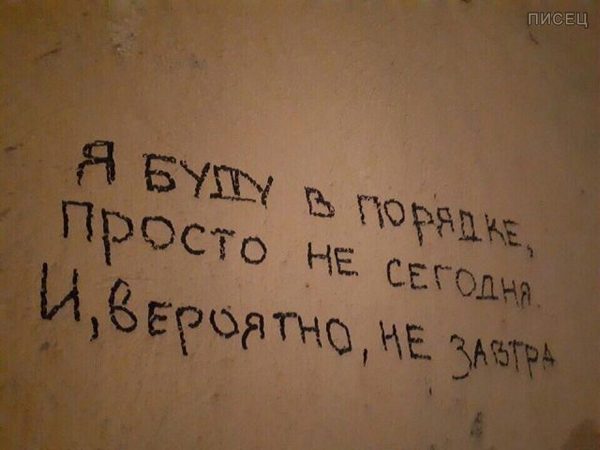 ПИСЕЦ
Я БУДУ В ПОРЯДКЕ,
ПРОСТО НЕ СЕГОДНЯ.
И, ВЕРОЯТНО, НЕ ЗАВТРА